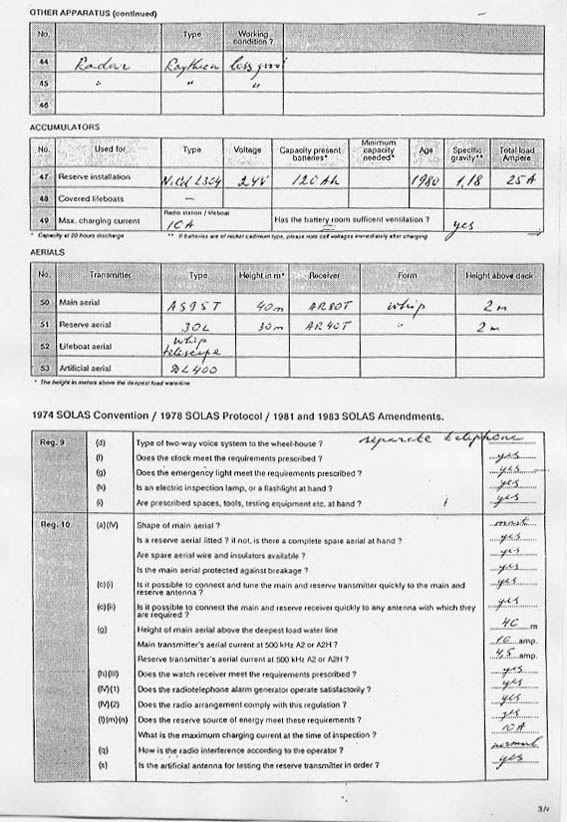 OTHER APPARATUS (continued)
No. Type Working condition ?
44 Radar Raytheon
45 " " "
46
ACCUMULATORS
No. Used for Type Voltage Capacity present batteries* Minimum capacity needed* Age Specific gravity** Total load Ampere
47 Reserve installation 24V 120 Ah 1980 1,18 25 A
48 Covered lifeboats –
49 Max. charging current Radio station / lifeboat 10A Has the battery room sufficent ventilation ? yes
* Capacity at 20 hours discharge ** If batteries are of nickel cadmium type, please note cell voltages immediately after charging
AERIALS
No. Transmitter Type Height in m* Receiver Form Height above deck
50 Main aerial AS95T 40m AR80T whip 2 m
51 Reserve aerial 30L 30m AR40T " 2 m
52 Lifeboat aerial whip telescope
53 Artificial aerial L400
* The height in meters above the deepest load waterline
1974 SOLAS Convention / 1978 SOLAS Protocol / 1981 and 1983 SOLAS Amendments.
Reg. 9 (d) Type of two-way voice system to the wheel-house ? separate telephone
(f) Does the clock meet the requirements prescribed ? yes
(g) Does the emergency light meet the requirements prescribed ? yes
(h) Is an electric inspection lamp, or a flashlight at hand ? yes
(i) Are prescribed spaces, tools, testing equipment etc. at hand ? yes
Reg. 10 (a)(IV) Shape of main aerial ? mast
Is a reserve aerial fitted ? if not, is there a complete spare aerial at hand ? yes
Are spare aerial wire and insulators available ? yes
Is the main aerial protected against breakage ? yes
(c)(i) Is it possible to connect and tune the main and reserve transmitter quickly to the main and
reserve antenna ? yes
(c)(ii) Is it possible to connect the main and reserve receiver quickly to any antenna with which they
are required ? yes
(g) Height of main aerial above the deepest load water line 40 m
Main transmitter's aerial current at 500 kHz A2 or A2H ? 10 amp.
Reserve transmitter's aerial current at 500 kHz A2 or A2H ? 4,5 amp.
(h)(iii) Does the watch receiver meet the requirements prescribed ? yes
(IV)(1) Does the radiotelephone alarm generator operate satisfactorily ? yes
(IV)(2) Does the radio arrangement comply with this regulation ? yes
(l)(m)(n) Does the reserve source of energy meet these requirements ? yes
What is the maximum charging current at the time of inspection ? 10 A
(q) How is the radio interference according to the operator ? normal
(s) Is the artificial antenna for testing the reserve transmitter in order ? yes